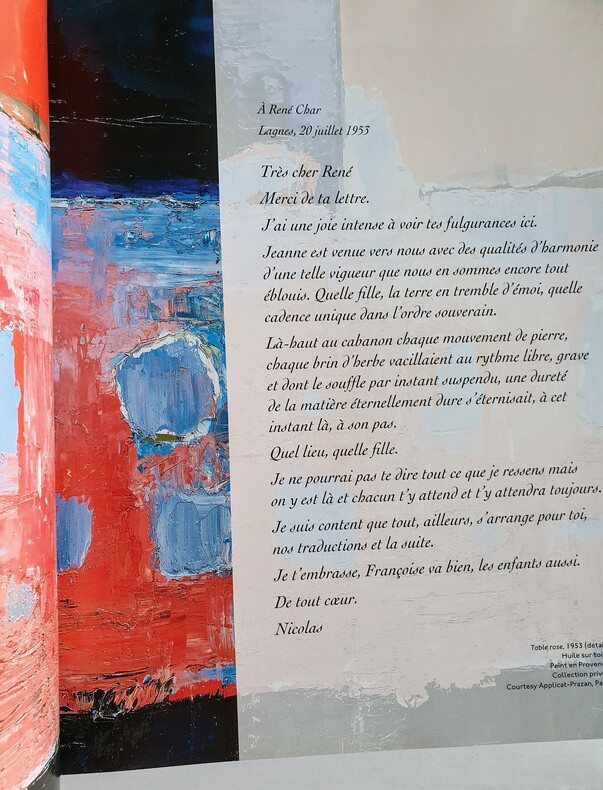 À René Char
Lagnes, 20 juillet 1953
Très cher René
Merci de ta lettre.
J'ai une joie intense à voir tes fulgurances ici.
Jeanne est venue vers nous avec des qualités d'harmonie
d'une telle vigueur que nous en sommes encore tout
éblouis. Quelle fille, la terre en tremble d'émoi, quelle
cadence unique dans l'ordre souverain.
Là-haut au cabanon chaque mouvement de pierre,
chaque brin d'herbe vacillaient au rythme libre, grave
et dont le souffle par instant suspendu, une dureté
de la matière éternellement dure s'éternisait, à cet
instant là, à son pas.
Quel lieu, quelle fille.
Je ne pourrai pas te dire tout ce que je ressens mais
on y est là et chacun t'y attend et t'y attendra toujours.
Je suis content que tout, ailleurs, s'arrange pour toi,
nos traductions et la suite.
Je t'embrasse, Françoise va bien, les enfants aussi.
De tout cœur.
Nicolas
Table rose, 1953
Huile sur
Peint en
Collection
Courtesy Applicat-Prazan,